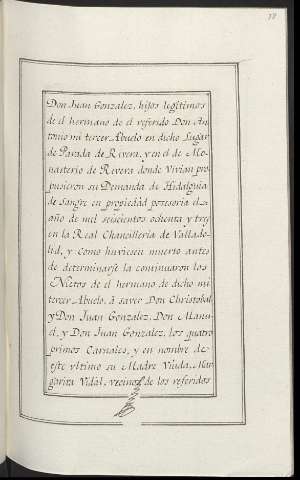 Don Juan Gonzalez, hijos legitimos
de el hermano de el referido Don An
tonio mi tercer Abuelo en dicho Lugar
de Parada de Rivera, y en el de Mo-
nasterio de Rivera donde Vivian pro
pusieron su Demanda de Hidalguia
de Sangre en propiedad posesoria el
año de mil seiscientos ochenta y tres
en la Real Chancilleria de Vallado-
lid, y como huviesen muerto antes
de determinarse la continuaron los
Nietos de el hermano de dicho mi
tercer Abuelo, à saver Don Christobal
y Don Juan Gonzalez, Don Manu-
el, y Don Juan Gonzalez, los quatro
primos Carnales, y en nombre de
este vltimo su Madre Viuda, Mar
garita Vidal, vecinos de los referidos